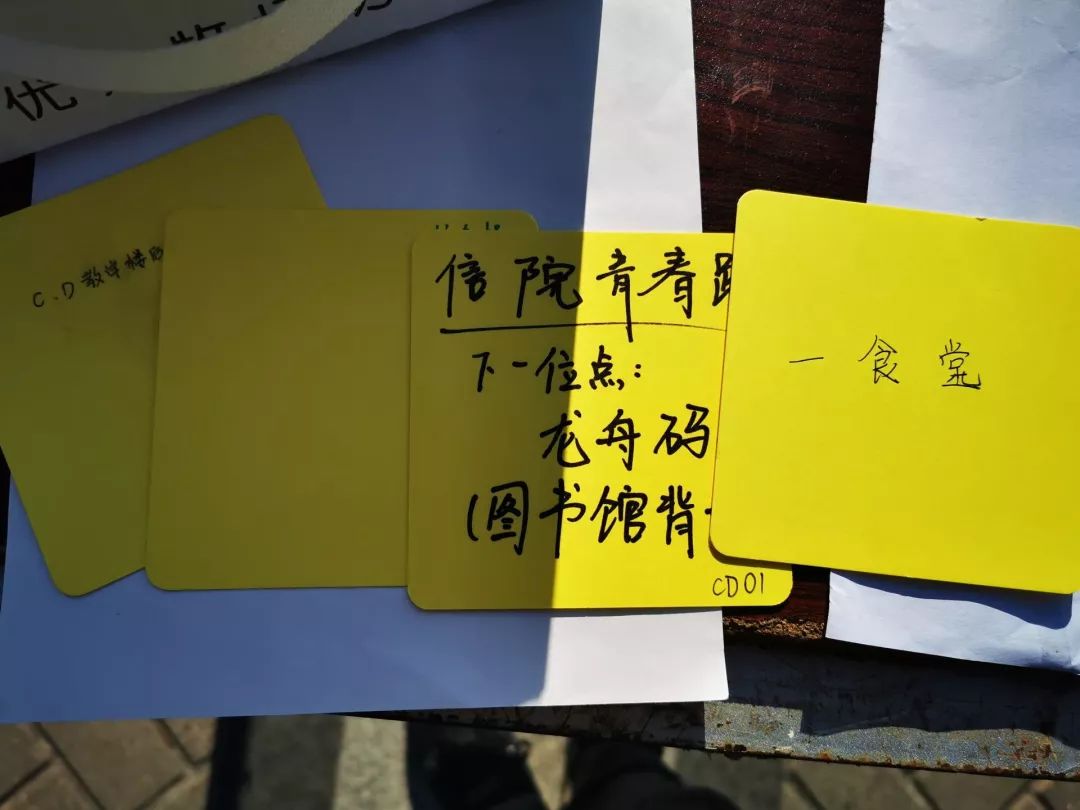 优
C.D教学楼
信院青春
下一位点:
龙舟码
(图书馆背
CD01
一食堂